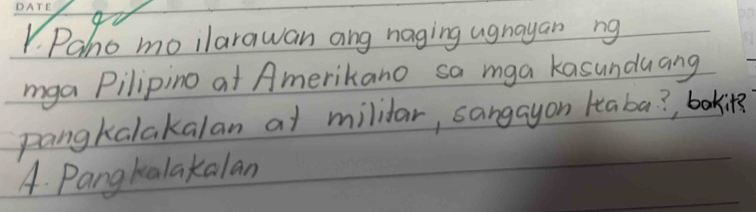 DATE
1. Paano mo ilarawan ang naging ugnayan ng
mga Pilipino at Amerikano sa mga kasunduang
pangkalakalan at militar, sangayon kaba?, bakit?
A. Pangkalakalan